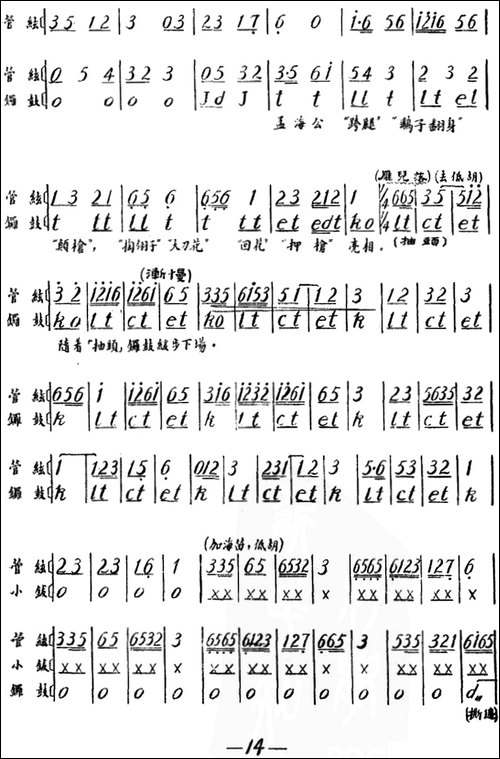 管 絃 3 5 1 2 | 3 0 3 | 2 3 1 7 | 6 0 | i·6 5 6 | i2i6 5 6
管 絃 0 5 4 | 3 2 3 | 0 5 3 2 | 3·5 6 i | 5 4 3 | 2 3 2
鑼 鼓 0 0 | 0 0 | J d J | t t | l t t | l t e t
孟 海 公 "跨腿" "鷂子翻身"
(雁兒落)(去低胡)
管 絃 1 3 2 1 | 6 5 6 | 6 5 6 1 | 2 3 2 1 2 | 1 | 1/4 6 6 5 | 3 5 | 5 i 2
鑼 鼓 t l t | l t t | t t t | e t e d t | k o | l t | c t | e t
"顛槍", "掏翎子" "大刀花" "回花" "押 槍" 亮相。 (抽頭)
(漸慢)
管 絃 3 2 | i2i6 | i26i | 6 5 | 3 3 5 | 6 i 5 3 | 5 1 | 1 2 | 3 | 1 2 | 3 2 | 3
鑼 鼓 k o | l t | c t | e t | k o | l t | c t | e t | k | l t | c t | e t
隨着"抽頭,鑼鼓緩步下場。
管 絃 6 5 6 | i | i26i | 6 5 | 3 i 6 | i232 | i26i | 6 5 | 3 | 2 3 | 5635 | 3 2
鑼 鼓 k | l t | c t | e t | k | l t | c t | e t | k | l t | c t | e t
管 絃 1 | 1 2 3 | 1 5 | 6 | 0 1 2 | 3 | 2 3 1 | 1 2 | 3 | 5·6 | 5 3 | 3 2 | 1
鑼 鼓 k | l t | c t | e t | k | l t | c t | e t | k | l t | c t | e t | k
(加海笛,低胡)
管 絃 2 3 | 2 3 | 1 6 | 1 | 3 3 5 | 6 5 | 6532 | 3 | 6565 | 6123 | 1 2 7 | 6
小 鈸 0 | 0 | 0 | 0 | x x | x x | x x | x | x x | x x | x x | x
管 絃 3 3 5 | 6 5 | 6532 | 3 | 6565 | 6123 | 1 2 7 | 6 6 5 | 3 | 5 3 5 | 3 2 1 | 6165
小 鈸 x x | x x | x x | x | x x | x x | x x | x | x | x x | x x | x x
鑼 鼓 0 | 0 | 0 | 0 | 0 | 0 | 0 | 0 | 0 | 0 | 0 | d
(撕邊)
—14—